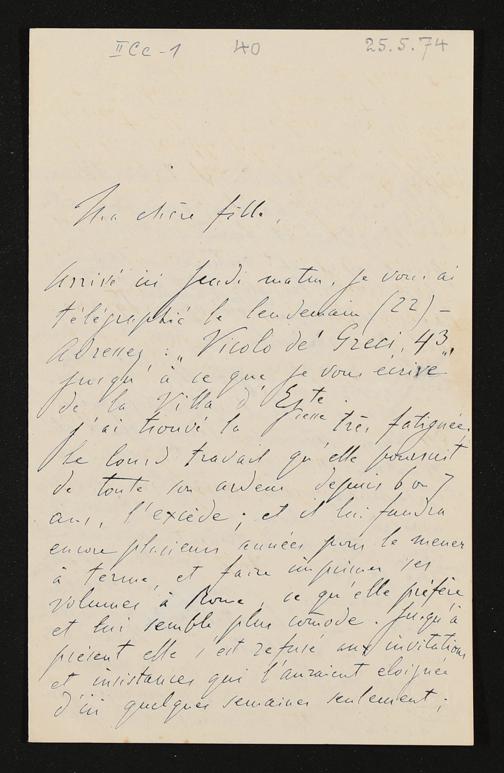 IICc-1 40 25.5.74
Ma chère fille,
Arrivé ici Jeudi matin, je vous ai
télégraphié le lendemain (22) –
Adressez : „Vicolo de' Greci, 43„,
jusqu'à ce que je vous écrive
de la Villa d'Este.
J'ai trouvé la Psse très fatiguée.
Le lourd travail qu'elle poursuit
de toute son ardeur depuis 6 ou 7
ans, l'excède ; et il lui faudra
encore plusieurs années pour le mener
à terme, et faire imprimer ses
volumes à Rome, ce qu'elle préfère
et lui semble plus comode. Jusqu'à
présent elle s'est refusé aux invitations
et insistances qui l'auraient eloignée
d'ici quelques semaines seulement ;